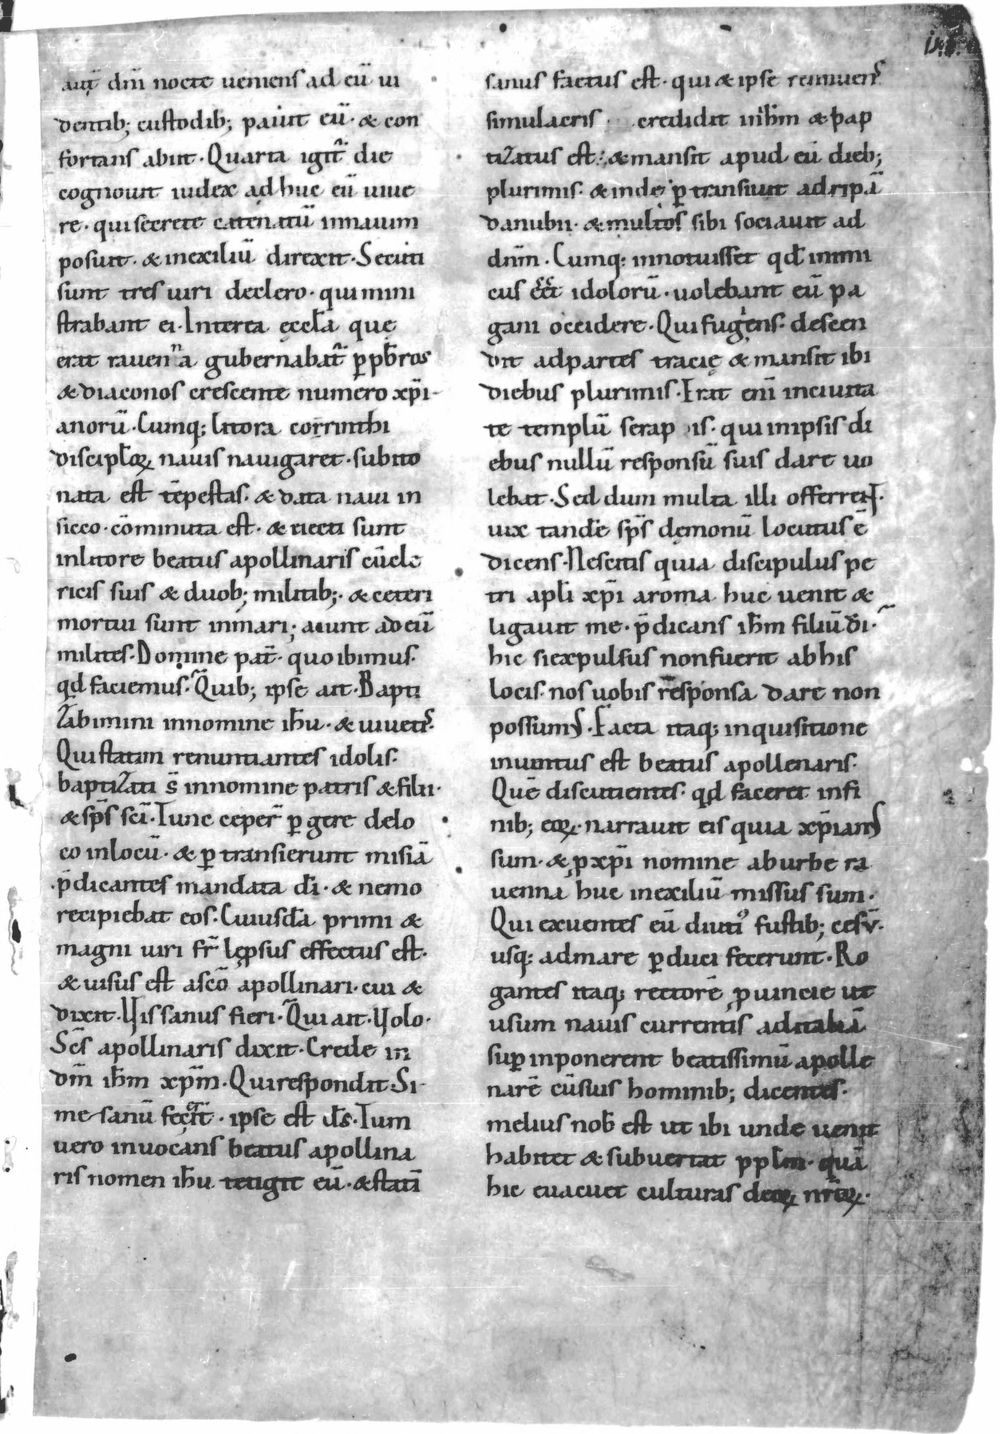 aut̄ dn̄i nocte ueniens ad eū ui
dentib; custodib; pauit eū · & con
fortans abiit · Quarta igit̄ die
cognouit iudex adhuc eū uiue
re · qui secrete catenatū in nauim
posuit · & in exiliū direxit · Secuti
sunt tres uiri declero · qui mini
strabant ei · Interea ęccl̄a quę
erat rauenna gubernabat̄ p̱ p̄bros
& diaconos crescente numero xp̄i-
anorū · Cumq; litora corrinthi
discipl̄oꝝ nauis nauigaret · subito
nata est tēpestas · & data naui in
sicco · cōminuta est · & eiecti sunt
in litore beatus apollinaris cū cle
ricis suis & duob; militib; · & ceteri
mortui sunt in mari; aiunt ad eū
milites · Domine pat̄ · quo ibimus ·
qd̄ faciemus · Quib; ipse ait · Bapti
zabimini in nomine ih̄u · & uiuetis ·
Qui statim renuntiantes idolis ·
baptizati s̄ in nomine patris & filii ·
& sp̄s sc̄i · Tunc ceper̄ p̱gere delo
co in locū · & p̱transierunt misiā
· p̄dicantes mandata dī · & nemo
recipiebat eos · Cuiusdā primi &
magni uiri fr̄ lęprsus effectus est ·
& uisus est a sc̄o apollinari · cui &
dixit · Uis sanus fieri · Qui ait · Uolo ·
Sc̄s apollinaris dixit · Crede in
dm̄ ih̄m xp̄m · Qui respondit · Si
me sanū fecerit · ipse est ds̄ · Tum
uero inuocans beatus apollina
ris nomen ih̄u tetigit eū · & statī
sanus factus est · qui & ipse renuens
simulacris credidit in ih̄m & bap
tizatus est · & mansit apud eū dieb;
plurimis · & inde p̱transiuit ad ripā
danubii · & multos sibi sociauit ad
dn̄m · Cumq; innotuisset qd̄ inimi
cus eēt idolorū · uolebant eū pa
gani occidere · Qui fugiens · descen
dit ad partes tracię & mansit ibi
diebus plurimis · Erat enī in ciuita
te templū serapis · qui in ipsis di
ebus nullū responsū suis dare uo
lebat · Sed dum multa illi offerrent ·
uix tandē sp̄s dęmonū locutus ē
dicens · Nescitis quia discipulus pe
tri apl̄i xp̄i a roma huc uenit &
ligauit me · p̄dicans ih̄m filiū dī ·
hic si expulsus non fuerit ab his
locis · nos uobis responsa dare non
possumus · Facta itaq; inquisitione
inuentus est beatus apollenaris ·
Quē discutientes · qd̄ faceret in fi
nib; eoꝝ · narrauit eis quia xp̄ianus
sum · & ꝓ xp̄i nomine ab urbe ra
uenna huc in exiliū missus sum ·
Qui exuentes eū diutius fustib; cesū ·
usq; ad mare p̱duci fecerunt · Ro
gantes itaq; rectorē ꝓuincie ut
usum nauis currentis ad italiā
sup̱inponerent beatissimū apolle
narē cū suis hominib; dicentes ·
melius nob̄ est ut ibi unde uenit
habitet & subuertat ppl̄m · quā
hic euacuet culturas deoꝝ nr̄oꝝ ·